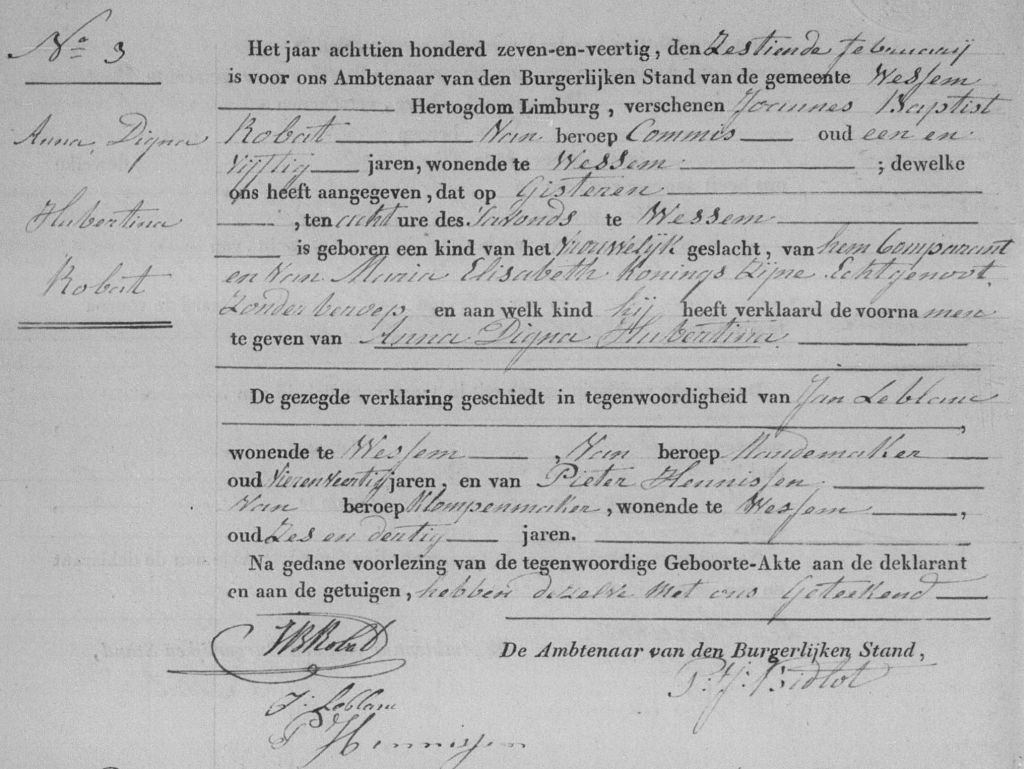 Nº 3
Anna Digna
Hubertina
Robat
Het jaar achttien honderd zeven-en-veertig, den Zestiende februarij
is voor ons Ambtenaar van den Burgerlijken Stand van de gemeente Wessem
Hertogdom Limburg, verschenen Joannes Baptist
Robat van beroep Commis oud een en
vijftig jaren, wonende te Wessem ; dewelke
ons heeft aangegeven, dat op Gisteren
, ten acht ure des Savonds te Wessem
is geboren een kind van het Vrouwelijk geslacht, van hem Comparant
en van Maria Elisabeth Konings Zijne Echtgenoot.
Zonder beroep en aan welk kind hij heeft verklaard de voorna men
te geven van Anna Digna Hubertina
De gezegde verklaring geschiedt in tegenwoordigheid van Jan Leblanc
,
wonende te Wessem , van beroep Mandemaker
oud Vierenveertig jaren, en van Pieter Hennissen
van beroep Klompenmaker, wonende te Wessem ,
oud Zes en dertig jaren.
Na gedane voorlezing van de tegenwoordige Geboorte-Akte aan de deklarant
en aan de getuigen, hebben dezelve met ons Geteekend
JB Robat
De Ambtenaar van den Burgerlijken Stand,
J: Leblanc
P Hennissen